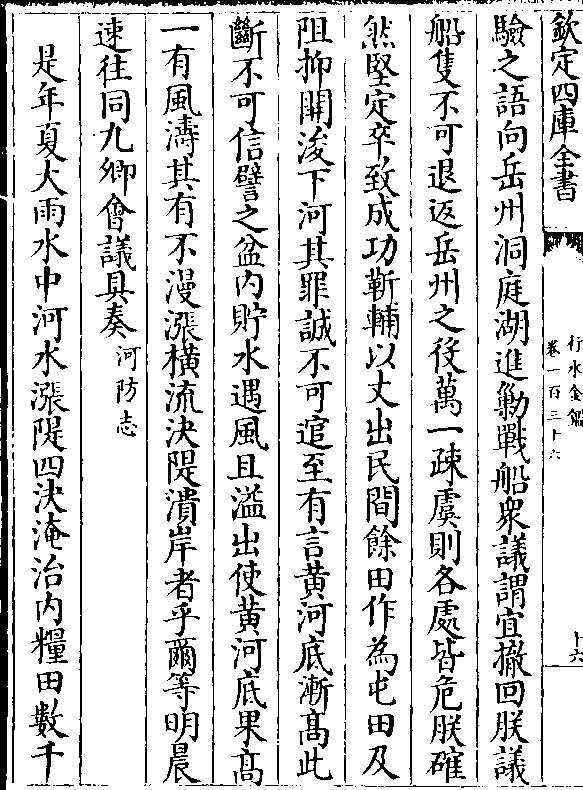 欽定四庫全書
行水金鑑
卷一百三十六
十六
驗之語向岳州洞庭湖進勦戰船衆議謂宜撤回朕議
船隻不可退返岳州之役萬一疎虞則各處皆危朕確
然堅定卒致成功靳輔以丈出民間餘田作為屯田及
阻抑開浚下河其罪誠不可逭至有言黄河底漸髙此
斷不可信譬之盆内貯水遇風且溢出使黄河底果髙
一有風濤其有不漫漲横流決隄潰岸者乎爾等明晨
速往同九卿會議具奏河防志
是年夏大雨水中河水漲隄四決淹治内糧田數千